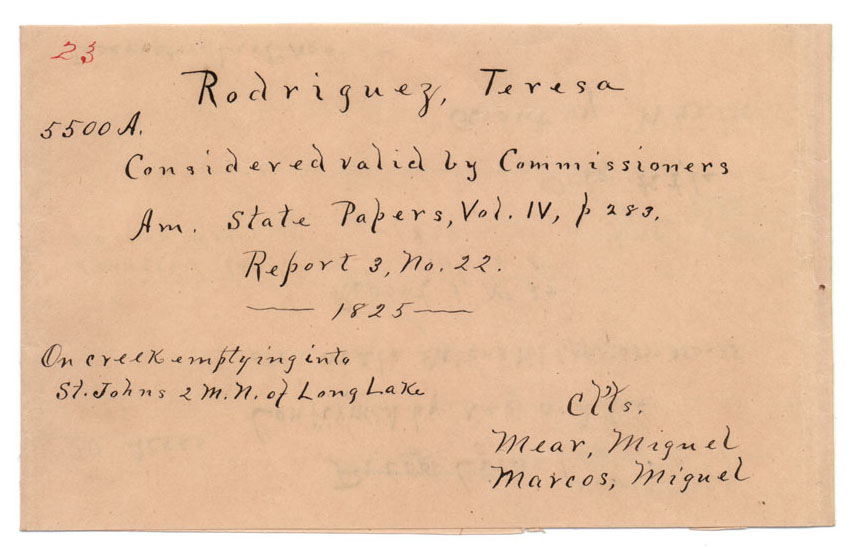 23
Rodriguez, Teresa
5500 A.
Considered valid by Commissioners
Am. State Papers, Vol. IV, p 283.
Report 3, No. 22.
— 1825 —
On creek emptying into
St. Johns 2 M. N. of Long Lake
Clts.
Mear, Miguel
Marcos, Miguel